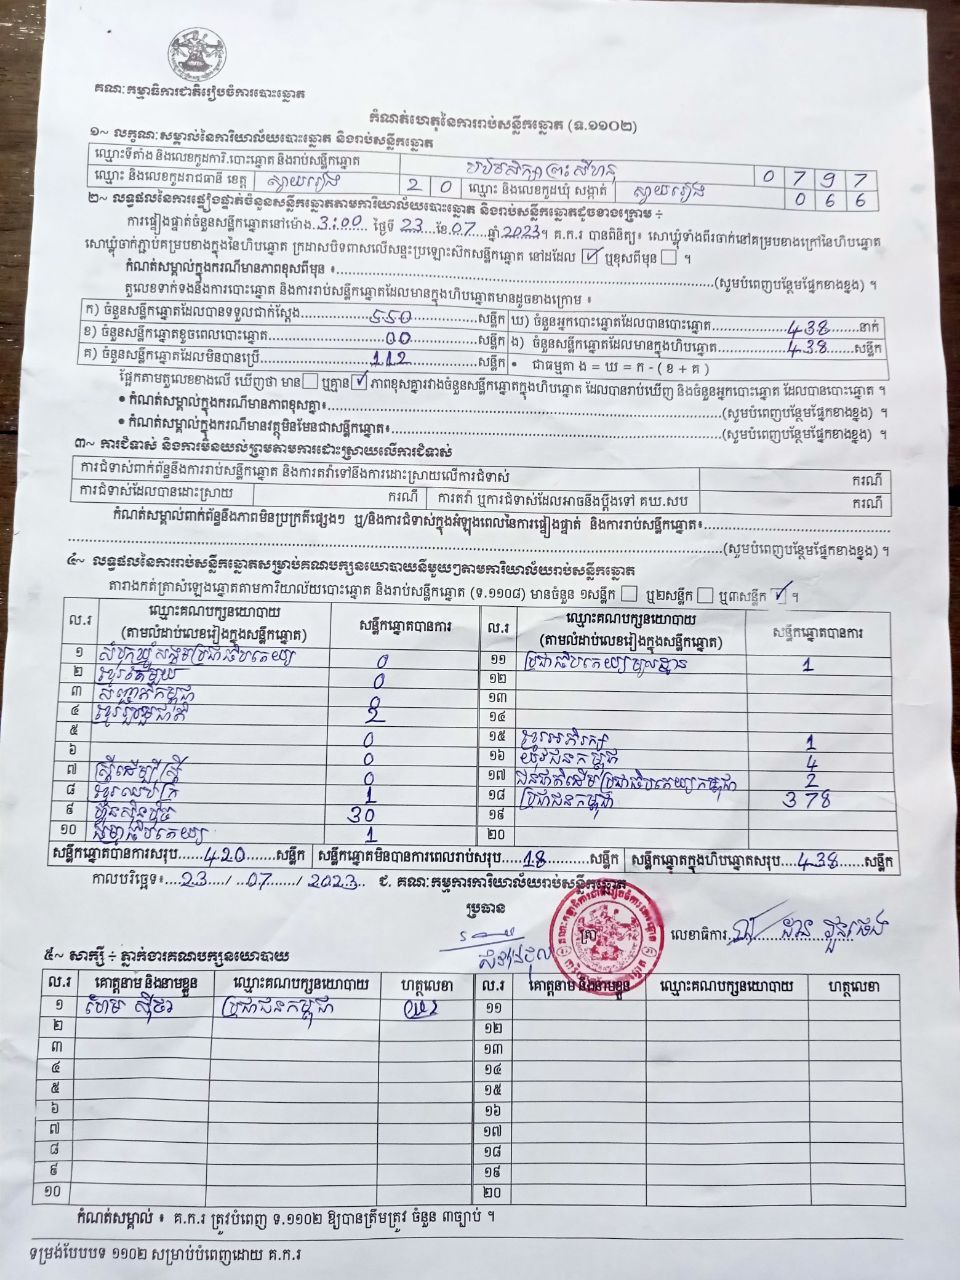 គណៈកម្មាធិការជាតិរៀបចំការបោះឆ្នោត
កំណត់ហេតុនៃការរាប់សន្លឹកឆ្នោត (ទ.១១០២)
១~ លក្ខណៈសម្គាល់នៃការិយាល័យបោះឆ្នោត និងរាប់សន្លឹកឆ្នោត
ឈ្មោះទីតាំង និងលេខកូដការិ.បោះឆ្នោត និងរាប់សន្លឹកឆ្នោត 0 7 9 7
ឈ្មោះ និងលេខកូដរាជធានី ខេត្ត ស្វាយរៀង 2 0 ឈ្មោះ និងលេខកូដឃុំ សង្កាត់ ស្វាយរៀង 0 6 6
២~ លទ្ធផលនៃការផ្ទៀងផ្ទាត់ចំនួនសន្លឹកឆ្នោតតាមការិយាល័យបោះឆ្នោត និងរាប់សន្លឹកឆ្នោតដូចខាងក្រោម ÷
ការផ្ទៀងផ្ទាត់ចំនួនសន្លឹកឆ្នោតនៅម៉ោង.3:00 ថ្ងៃទី 23 ខែ.07 ឆ្នាំ 2023។ គ.ក.រ បានពិនិត្យ៖ សោឃ្លុំទាំងពីរចាក់នៅគម្របខាងក្រៅនៃហិបឆ្នោត
សោឃ្លុំចាក់ភ្ជាប់គម្របខាងក្នុងនៃហិបឆ្នោត ក្រដាសបិទពាសលើសន្ទះប្រឡោះស៊កសន្លឹកឆ្នោត នៅដដែល ☑ ឬខុសពីមុន ☐ ។
កំណត់សម្គាល់ក្នុងករណីមានភាពខុសពីមុន ៖ (សូមបំពេញបន្ថែមផ្នែកខាងខ្នង) ។
តួលេខទាក់ទងនឹងការបោះឆ្នោត និងការរាប់សន្លឹកឆ្នោតដែលមានក្នុងហិបឆ្នោតមានដូចខាងក្រោម ៖
ក) ចំនួនសន្លឹកឆ្នោតដែលបានទទួលជាក់ស្តែង 550 សន្លឹក ឃ) ចំនួនអ្នកបោះឆ្នោតដែលបានបោះឆ្នោត 438 នាក់
ខ) ចំនួនសន្លឹកឆ្នោតខូចពេលបោះឆ្នោត 00 សន្លឹក ង) ចំនួនសន្លឹកឆ្នោតដែលមានក្នុងហិបឆ្នោត 438 សន្លឹក
គ) ចំនួនសន្លឹកឆ្នោតដែលមិនបានប្រើ 112 សន្លឹក • ជាធម្មតា ង = ឃ = ក - ( ខ + គ )
ផ្អែកតាមតួលេខខាងលើ ឃើញថា មាន ☐ ឬគ្មាន ☑ ភាពខុសគ្នារវាងចំនួនសន្លឹកឆ្នោតក្នុងហិបឆ្នោត ដែលបានរាប់ឃើញ និងចំនួនអ្នកបោះឆ្នោត ដែលបានបោះឆ្នោត ។
• កំណត់សម្គាល់ក្នុងករណីមានភាពខុសគ្នា៖ (សូមបំពេញបន្ថែមផ្នែកខាងខ្នង) ។
• កំណត់សម្គាល់ក្នុងករណីមានវត្ថុមិនមែនជាសន្លឹកឆ្នោត៖ (សូមបំពេញបន្ថែមផ្នែកខាងខ្នង) ។
៣~ ការជំទាស់ និងការមិនយល់ព្រមតាមការដោះស្រាយលើការជំទាស់
ការជំទាស់ពាក់ព័ន្ធនឹងការរាប់សន្លឹកឆ្នោត និងការតវ៉ាទៅនឹងការដោះស្រាយលើការជំទាស់ ករណី
ការជំទាស់ដែលបានដោះស្រាយ ករណី ការតវ៉ា ឬការជំទាស់ដែលអាចនឹងប្តឹងទៅ គឃ.សប ករណី
កំណត់សម្គាល់ពាក់ព័ន្ធនឹងភាពមិនប្រក្រតីផ្សេងៗ ឬ/និងការជំទាស់ក្នុងអំឡុងពេលនៃការផ្ទៀងផ្ទាត់ និងការរាប់សន្លឹកឆ្នោត៖
(សូមបំពេញបន្ថែមផ្នែកខាងខ្នង) ។
៤~ លទ្ធផលនៃការរាប់សន្លឹកឆ្នោតសម្រាប់គណបក្សនយោបាយនីមួយៗតាមការិយាល័យរាប់សន្លឹកឆ្នោត
តារាងកត់ត្រាសំឡេងឆ្នោតតាមការិយាល័យបោះឆ្នោត និងរាប់សន្លឹកឆ្នោត (ទ.១១០៨) មានចំនួន ១សន្លឹក ☐ ឬ២សន្លឹក ☐ ឬ៣សន្លឹក ☑ ។
ល.រ ឈ្មោះគណបក្សនយោបាយ (តាមលំដាប់លេខរៀងក្នុងសន្លឹកឆ្នោត) សន្លឹកឆ្នោតបានការ ល.រ ឈ្មោះគណបក្សនយោបាយ (តាមលំដាប់លេខរៀងក្នុងសន្លឹកឆ្នោត) សន្លឹកឆ្នោតបានការ
១ សំបុកឃ្មុំសង្គមប្រជាធិបតេយ្យ 0 ១១ ប្រជាធិបតេយ្យមូលដ្ឋាន 1
២ ខ្មែរតែមួយ 0 ១២
៣ 0 ១៣
៤ ខ្មែររួបរួមជាតិ 2 ១៤
៥ 0 ១៥ ខ្មែរអភិរក្ស 1
៦ 0 ១៦ យុវជនកម្ពុជា 4
៧ ស្ត្រីដើម្បីស្ត្រី 0 ១៧ ជនជាតិដើមប្រជាធិបតេយ្យកម្ពុជា 2
៨ ខ្មែរឈប់ក្រ 1 ១៨ ប្រជាជនកម្ពុជា 378
៩ ហ៊្វុនស៊ិនប៉ិច 30 ១៩
១០ 1 ២០
សន្លឹកឆ្នោតបានការសរុប 420 សន្លឹក សន្លឹកឆ្នោតមិនបានការពេលរាប់សរុប 18 សន្លឹក សន្លឹកឆ្នោតក្នុងហិបឆ្នោតសរុប 438 សន្លឹក
កាលបរិច្ឆេទ៖ 23 / 07 / 2023 ជ. គណៈកម្មការការិយាល័យរាប់សន្លឹកឆ្នោត
ប្រធាន
លេខាធិការ
៥~ សាក្សី ÷ ភ្នាក់ងារគណបក្សនយោបាយ
ល.រ គោត្តនាម និងនាមខ្លួន ឈ្មោះគណបក្សនយោបាយ ហត្ថលេខា ល.រ គោត្តនាម និងនាមខ្លួន ឈ្មោះគណបក្សនយោបាយ ហត្ថលេខា
១ ប្រជាជនកម្ពុជា ១១
២ ១២
៣ ១៣
៤ ១៤
៥ ១៥
៦ ១៦
៧ ១៧
៨ ១៨
៩ ១៩
១០ ២០
កំណត់សម្គាល់ ៖ គ.ក.រ ត្រូវបំពេញ ទ.១១០២ ឱ្យបានត្រឹមត្រូវ ចំនួន ៣ច្បាប់ ។
ទម្រង់បែបបទ ១១០២ សម្រាប់បំពេញដោយ គ.ក.រ